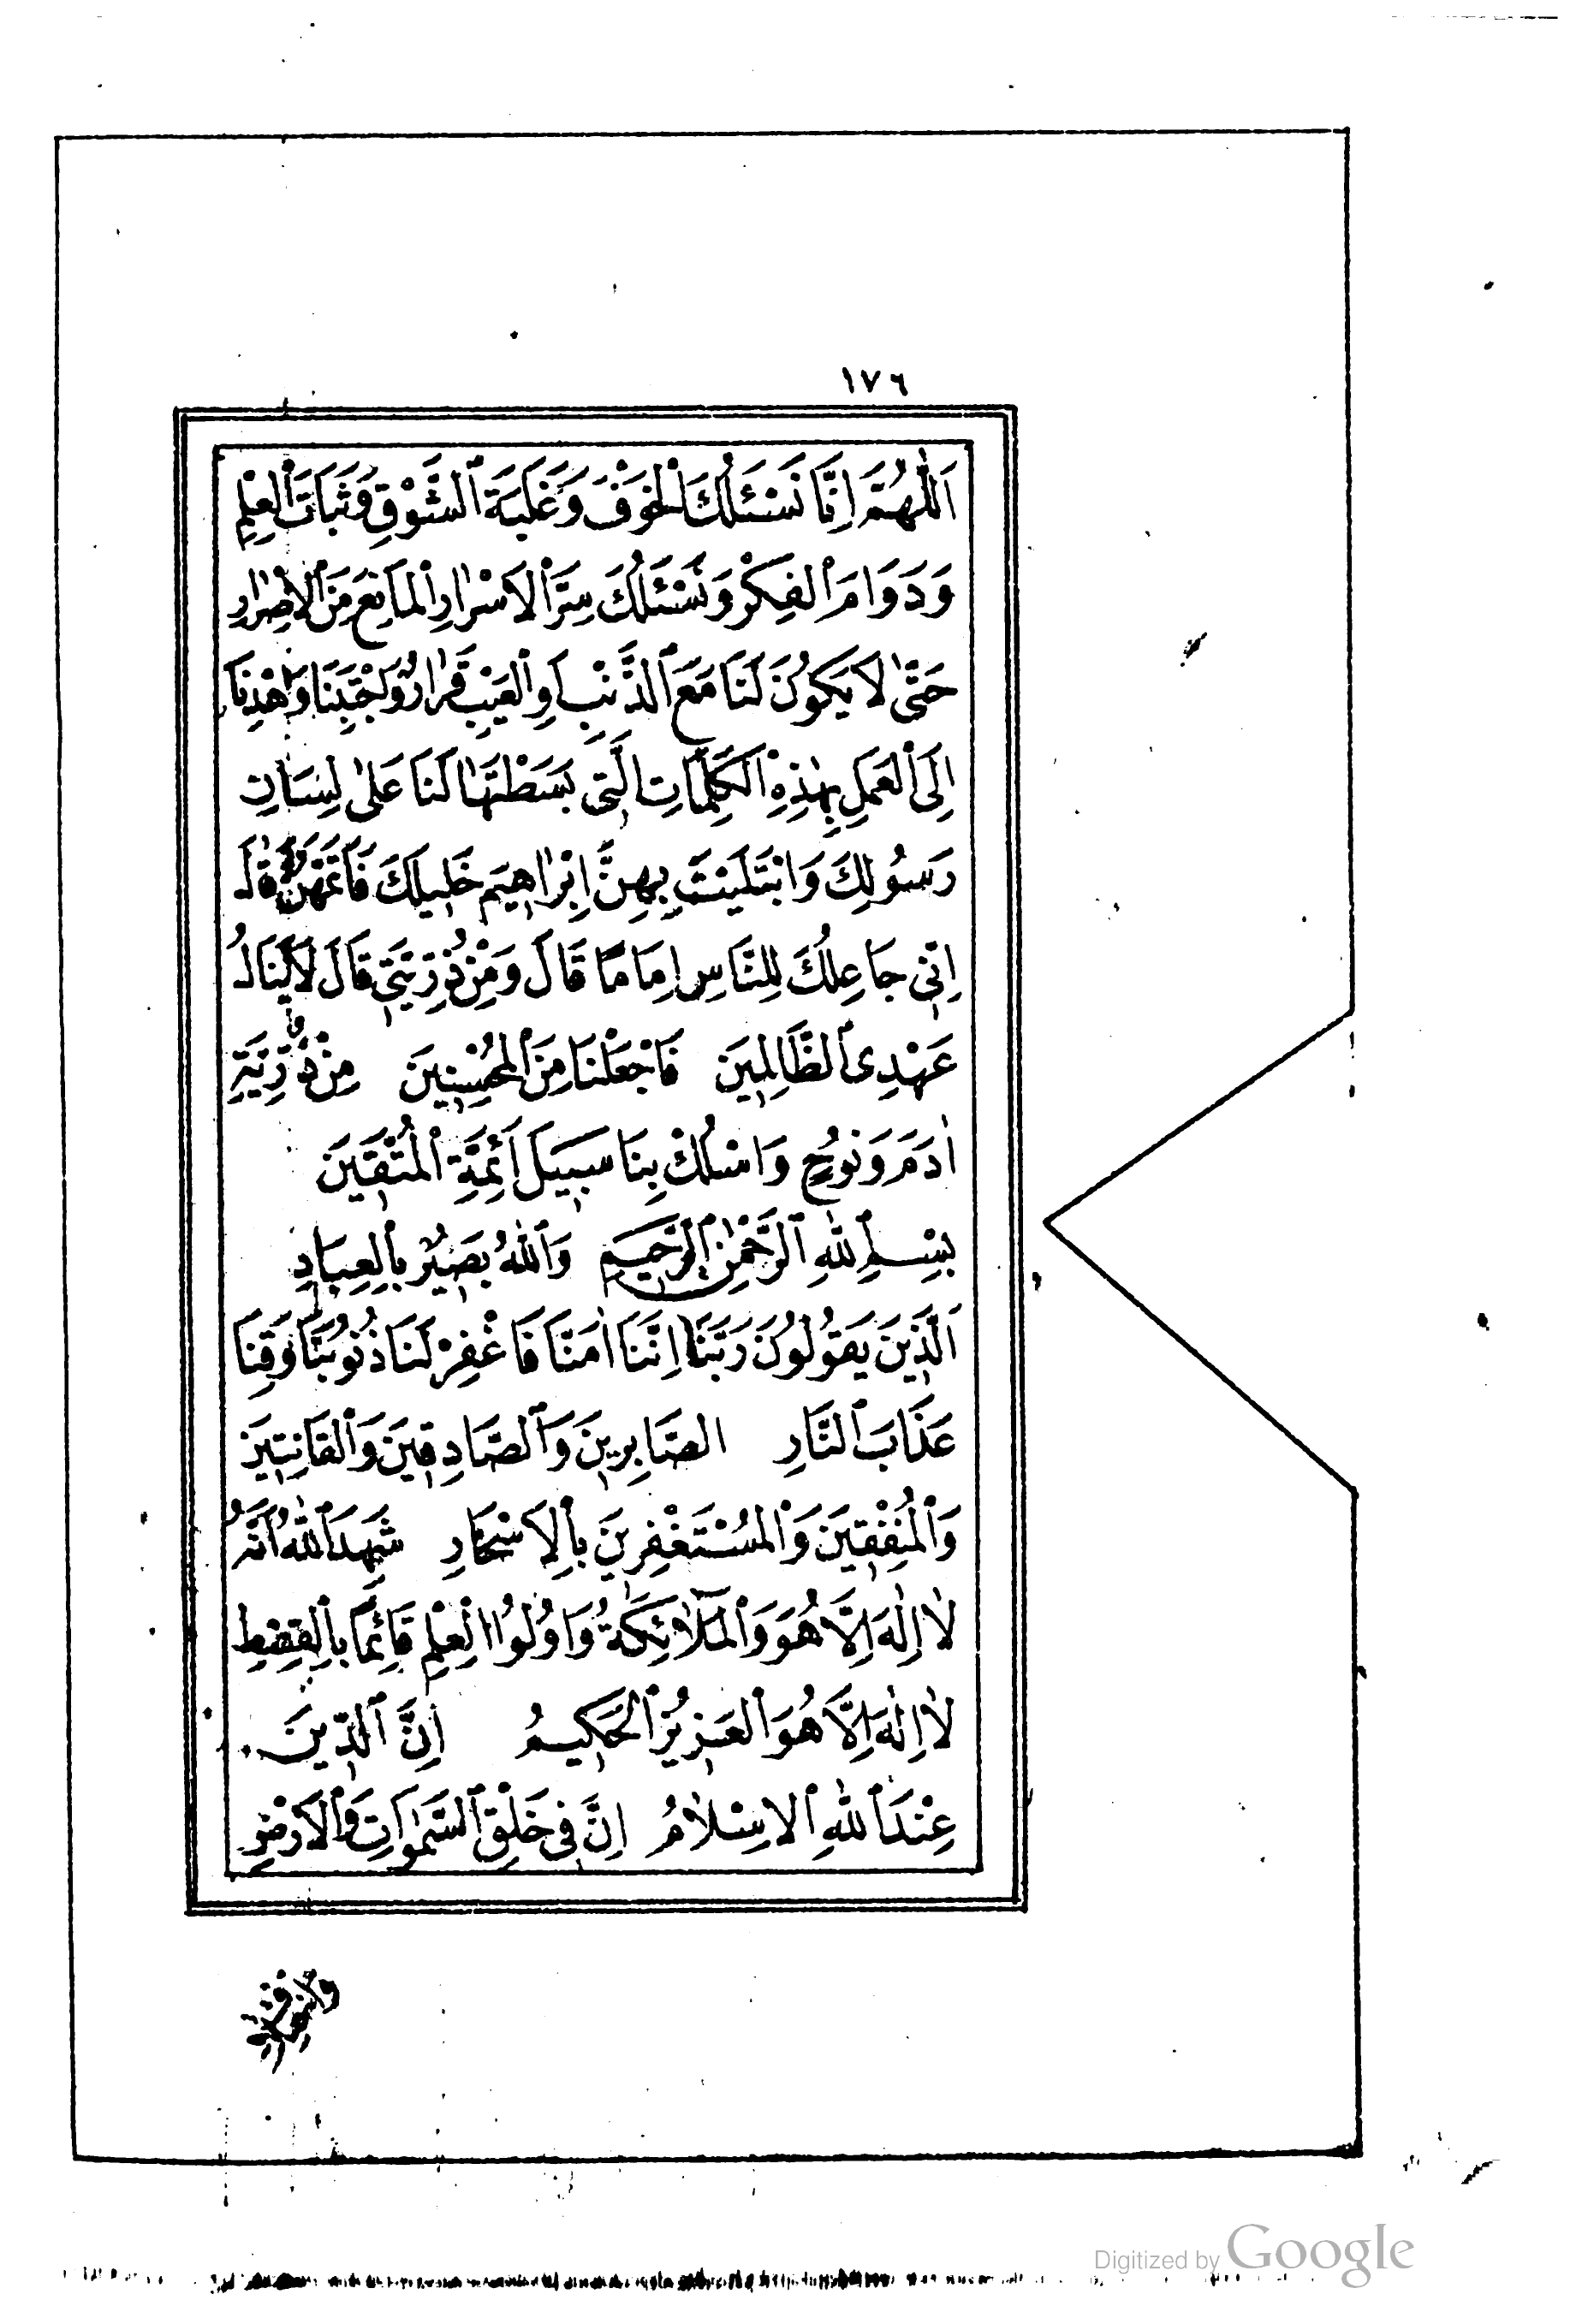 ١٧٦
اَللّٰهُمَّ اِنَّا نَسْئَلُكَ الْخَوْفَ وَغَلَبَةَ الشَّوْقِ وَثَبَاتَ الْعِلْمِ
وَدَوَامَ الْفِكْرِ وَنَسْئَلُكَ سِرَّ الْاَسْرَارِ الْمَانِعَ مِنَ الْاِصْرَارِ
حَتّٰى لَا يَكُونَ لَنَا مَعَ الذَّنْبِ اَوِ الْعَيْبِ قَرَارٌ وَاجْتَبِنَا وَاهْدِنَا
اِلَى الْعَمَلِ بِهٰذِهِ الْكَلِمَاتِ الَّتِى بَسَطْتَهَا لَنَا عَلٰى لِسَانِ
رَسُولِكَ وَابْتَلَيْتَ بِهِنَّ اِبْرَاهِيمَ خَلِيلَكَ فَاَتَمَّهُنَّ قَالَ
اِنِّى جَاعِلُكَ لِلنَّاسِ اِمَامًا قَالَ وَمِنْ ذُرِّيَّتِى قَالَ لَا يَنَالُ
عَهْدِى الظَّالِمِينَ فَاجْعَلْنَا مِنَ الْمُحْسِنِينَ مِنْ ذُرِّيَّةِ
اٰدَمَ وَنُوحٍ وَاسْلُكْ بِنَا سَبِيلَ اَئِمَّةِ الْمُتَّقِينَ
بِسْمِ اللّٰهِ الرَّحْمٰنِ الرَّحِيمِ وَاللّٰهُ بَصِيرٌ بِالْعِبَادِ
اَلَّذِينَ يَقُولُونَ رَبَّنَا اِنَّنَا اٰمَنَّا فَاغْفِرْ لَنَا ذُنُوبَنَا وَقِنَا
عَذَابَ النَّارِ الصَّابِرِينَ وَالصَّادِقِينَ وَالْقَانِتِينَ
وَالْمُنْفِقِينَ وَالْمُسْتَغْفِرِينَ بِالْاَسْحَارِ شَهِدَ اللّٰهُ اَنَّهُ
لَا اِلٰهَ اِلَّا هُوَ وَالْمَلَائِكَةُ وَاُولُوا الْعِلْمِ قَائِمًا بِالْقِسْطِ
لَا اِلٰهَ اِلَّا هُوَ الْعَزِيزُ الْحَكِيمُ اِنَّ الدِّينَ
عِنْدَ اللّٰهِ الْاِسْلَامُ اِنَّ فِى خَلْقِ السَّمٰوَاتِ وَالْاَرْضِ
Digitized by Google